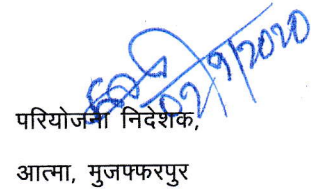 02/9/2020
परियोजना निदेशक,
आत्मा, मुजफ्फरपुर